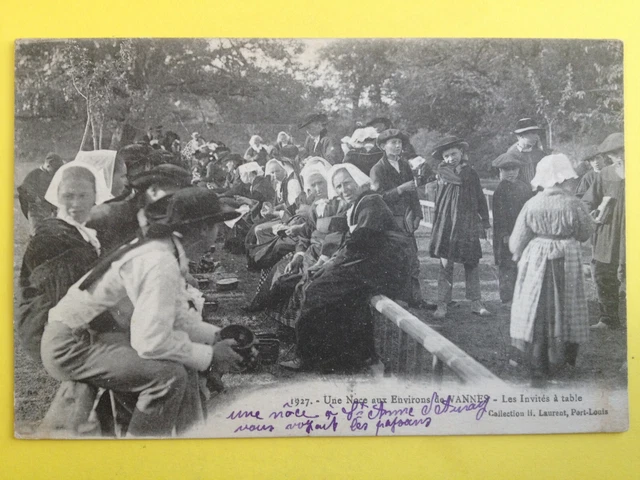 1927. - Une Noce aux Environs de VANNES - Les Invités à table
Collection H. Laurent, Port-Louis
une nôce a Ste Anne
vous les